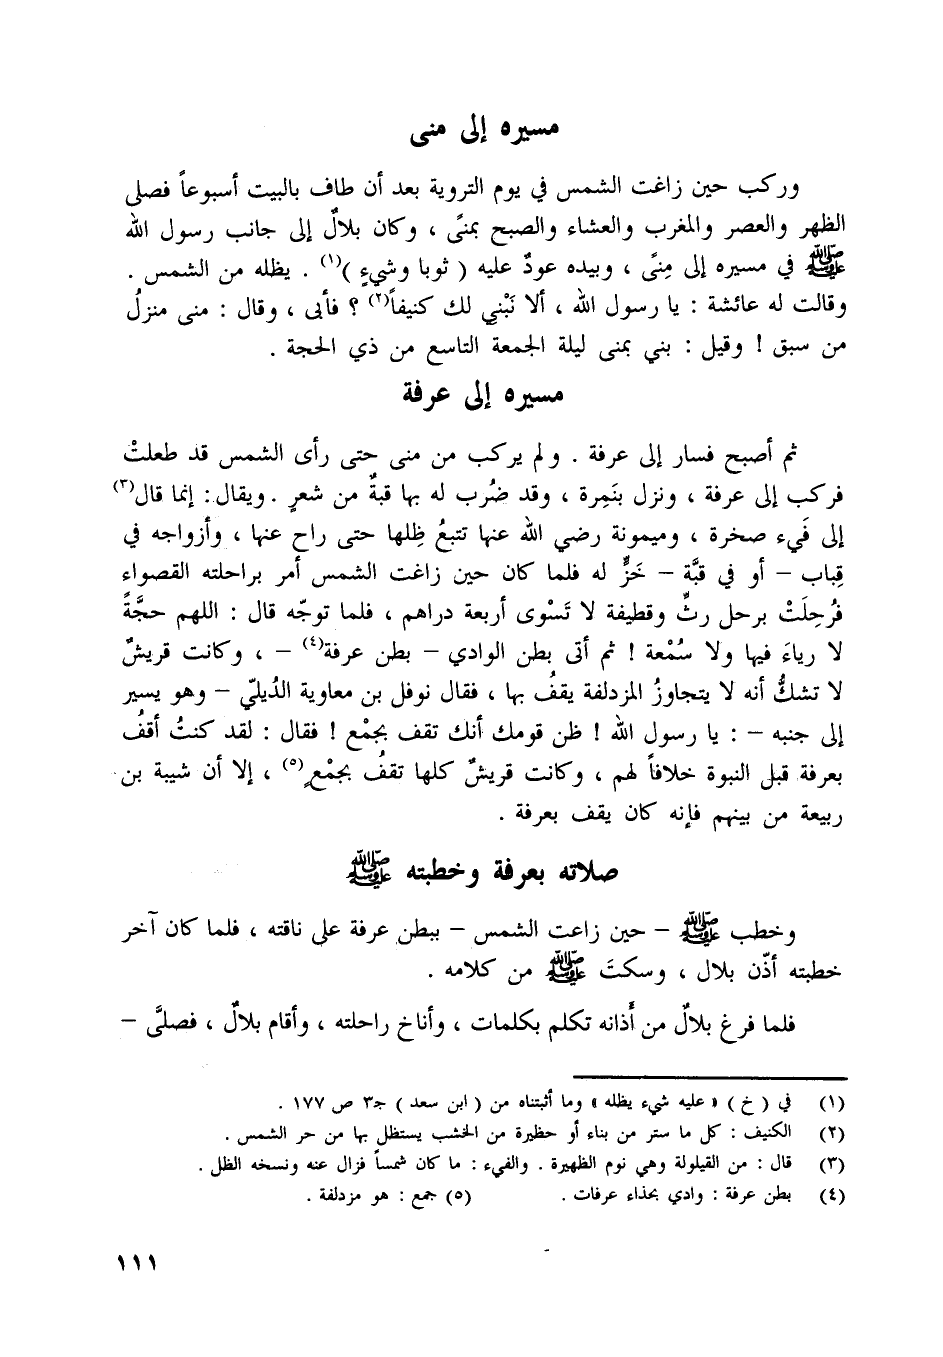 مسيره إلى منى
وركب حين زاغت الشمس في يوم التروية بعد أن طاف بالبيت أسبوعاً فصلى
الظهر والعصر والمغرب والعشاء والصبح بمنًى ، وكان بلالٌ إلى جانب رسول الله
ﷺ في مسيره إلى مِنًى ، وبيده عودٌ عليه ( ثوبا وشيءٍ )(١) . يظله من الشمس .
وقالت له عائشة : يا رسول الله ، ألا نَبْنِي لك كنيفاً(٢) ؟ فأبى ، وقال : منى منزلُ
من سبق ! وقيل : بني بمنى ليلة الجمعة التاسع من ذي الحجة .
مسيره إلى عرفة
ثم أصبح فسار إلى عرفة . ولم يركب من منى حتى رأى الشمس قد طعلتْ
فركب إلى عرفة ، ونزل بنَمِرة ، وقد ضُرب له بها قبةٌ من شعرٍ . ويقال : إنما قال(٣)
إلى فَيء صخرة ، وميمونة رضي الله عنها تتبعُ ظِلها حتى راح عنها ، وأزواجه في
قِباب – أو في قبَّة – خَزٍّ له فلما كان حين زاغت الشمس أمر براحلته القصواء
فرُحِلَتْ برحل رثٍّ وقطيفة لا تَسْوى أربعة دراهم ، فلما توجّه قال : اللهم حجَّةً
لا رياءَ فيها ولا سُمْعة ! ثم أتى بطن الوادي – بطن عرفة(٤) – ، وكانت قريشٌ
لا تشكُّ أنه لا يتجاوزُ المزدلفة يقفُ بها ، فقال نوفل بن معاوية الدُيليّ – وهو يسير
إلى جنبه – : يا رسول الله ! ظن قومك أنك تقف بجَمْع ! فقال : لقد كنتُ أقفُ
بعرفة قبل النبوة خلافاً لهم ، وكانت قريشٌ كلها تقفُ بجمْعٍ(٥) ، إلا أن شيبة بن
ربيعة من بينهم فإنه كان يقف بعرفة .
صلاته بعرفة وخطبته ﷺ
وخطب ﷺ – حين زاعت الشمس – ببطن عرفة على ناقته ، فلما كان آخر
خطبته أذّن بلال ، وسكتَ ﷺ من كلامه .
فلما فرغ بلالٌ من أذانه تكلم بكلمات ، وأناخ راحلته ، وأقام بلالٌ ، فصلىَّ –
(١) في ( خ ) « عليه شيء يظله » وما أثبتناه من ( ابن سعد ) جـ٣ ص ١٧٧ .
(٢) الكنيف : كل ما ستر من بناء أو حظيرة من الخشب يستظل بها من حر الشمس .
(٣) قال : من القيلولة وهي نوم الظهيرة . والفيء : ما كان شمساً فزال عنه ونسخه الظل .
(٤) بطن عرفة : وادي بحذاء عرفات . (٥) جمع : هو مزدلفة .
١١١